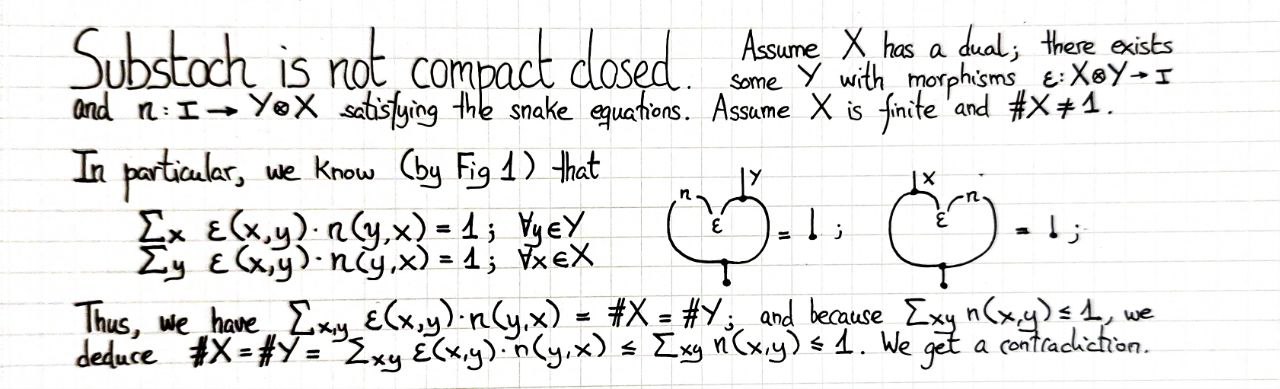 Substoch is not compact closed. Assume X has a dual; there exists
some Y with morphisms ε: X⊗Y → I
and n: I → Y⊗X satisfying the snake equations. Assume X is finite and #X ≠ 1.
In particular, we know (by Fig 1) that
∑x ε(x,y)·n(y,x) = 1; ∀y∈Y
∑y ε(x,y)·n(y,x) = 1; ∀x∈X
Y n ε = ;
X ε n = ;
Thus, we have ∑x,y ε(x,y)·n(y,x) = #X = #Y; and because ∑xy n(x,y) ≤ 1, we
deduce #X = #Y = ∑xy ε(x,y)·n(y,x) ≤ ∑xy n(x,y) ≤ 1. We get a contradiction.